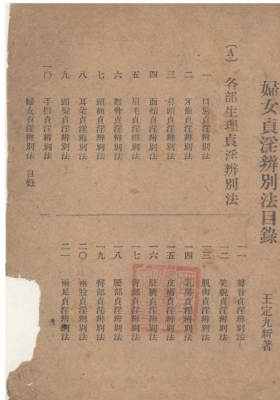 婦女貞淫辨別法目錄
王定九新著
(A) 各部生理貞淫辨別法
一 口唇貞淫辨別法
二 牙齒貞淫辨別法
三 鼻頭貞淫辨別法
四 面頰貞淫辨別法
五 眉毛貞淫辨別法
六 顴骨貞淫辨別法
七 頭額貞淫辨別法
八 耳朵貞淫辨別法
九 頭髮貞淫辨別法
一〇 手指貞淫辨別法
一一 聲音貞淫辨別法
一二 貞淫辨別法
一三 肌肉貞淫辨別法
一四 乳房貞淫辨別法
一五 皮膚貞淫辨別法
一六 肚臍貞淫辨別法
一七 背部貞淫辨別法
一八 腰部貞淫辨別法
一九 臀部貞淫辨別法
二〇 兩股貞淫辨別法
二一 兩足貞淫辨別法
婦女貞淫辨別法 目錄